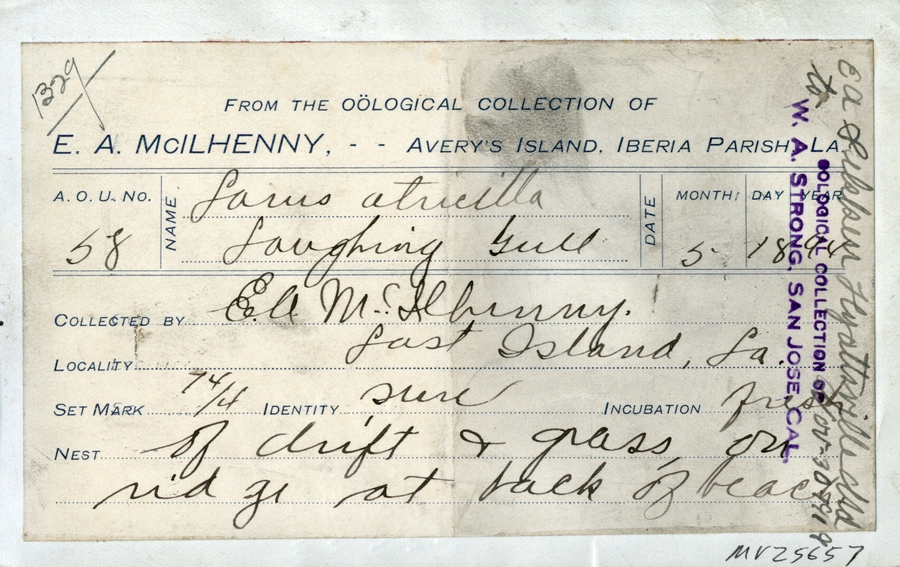 1329
FROM THE OÖLOGICAL COLLECTION OF
E. A. McILHENNY, - - AVERY'S ISLAND, IBERIA PARISH, LA.
A. O. U. No. NAME Larus atricilla DATE MONTH DAY YEAR
58 Laughing Gull 5 18 94
COLLECTED BY E. A. McIlhenny.
LOCALITY Last Island, La.
SET MARK 74/4 IDENTITY sure INCUBATION fresh
NEST Of drift & grass, on
ridge at back of beach
OOLOGICAL COLLECTION OF
W. A. STRONG, SAN JOSE, CAL.
to
Hyattsville Md
MVZ5657